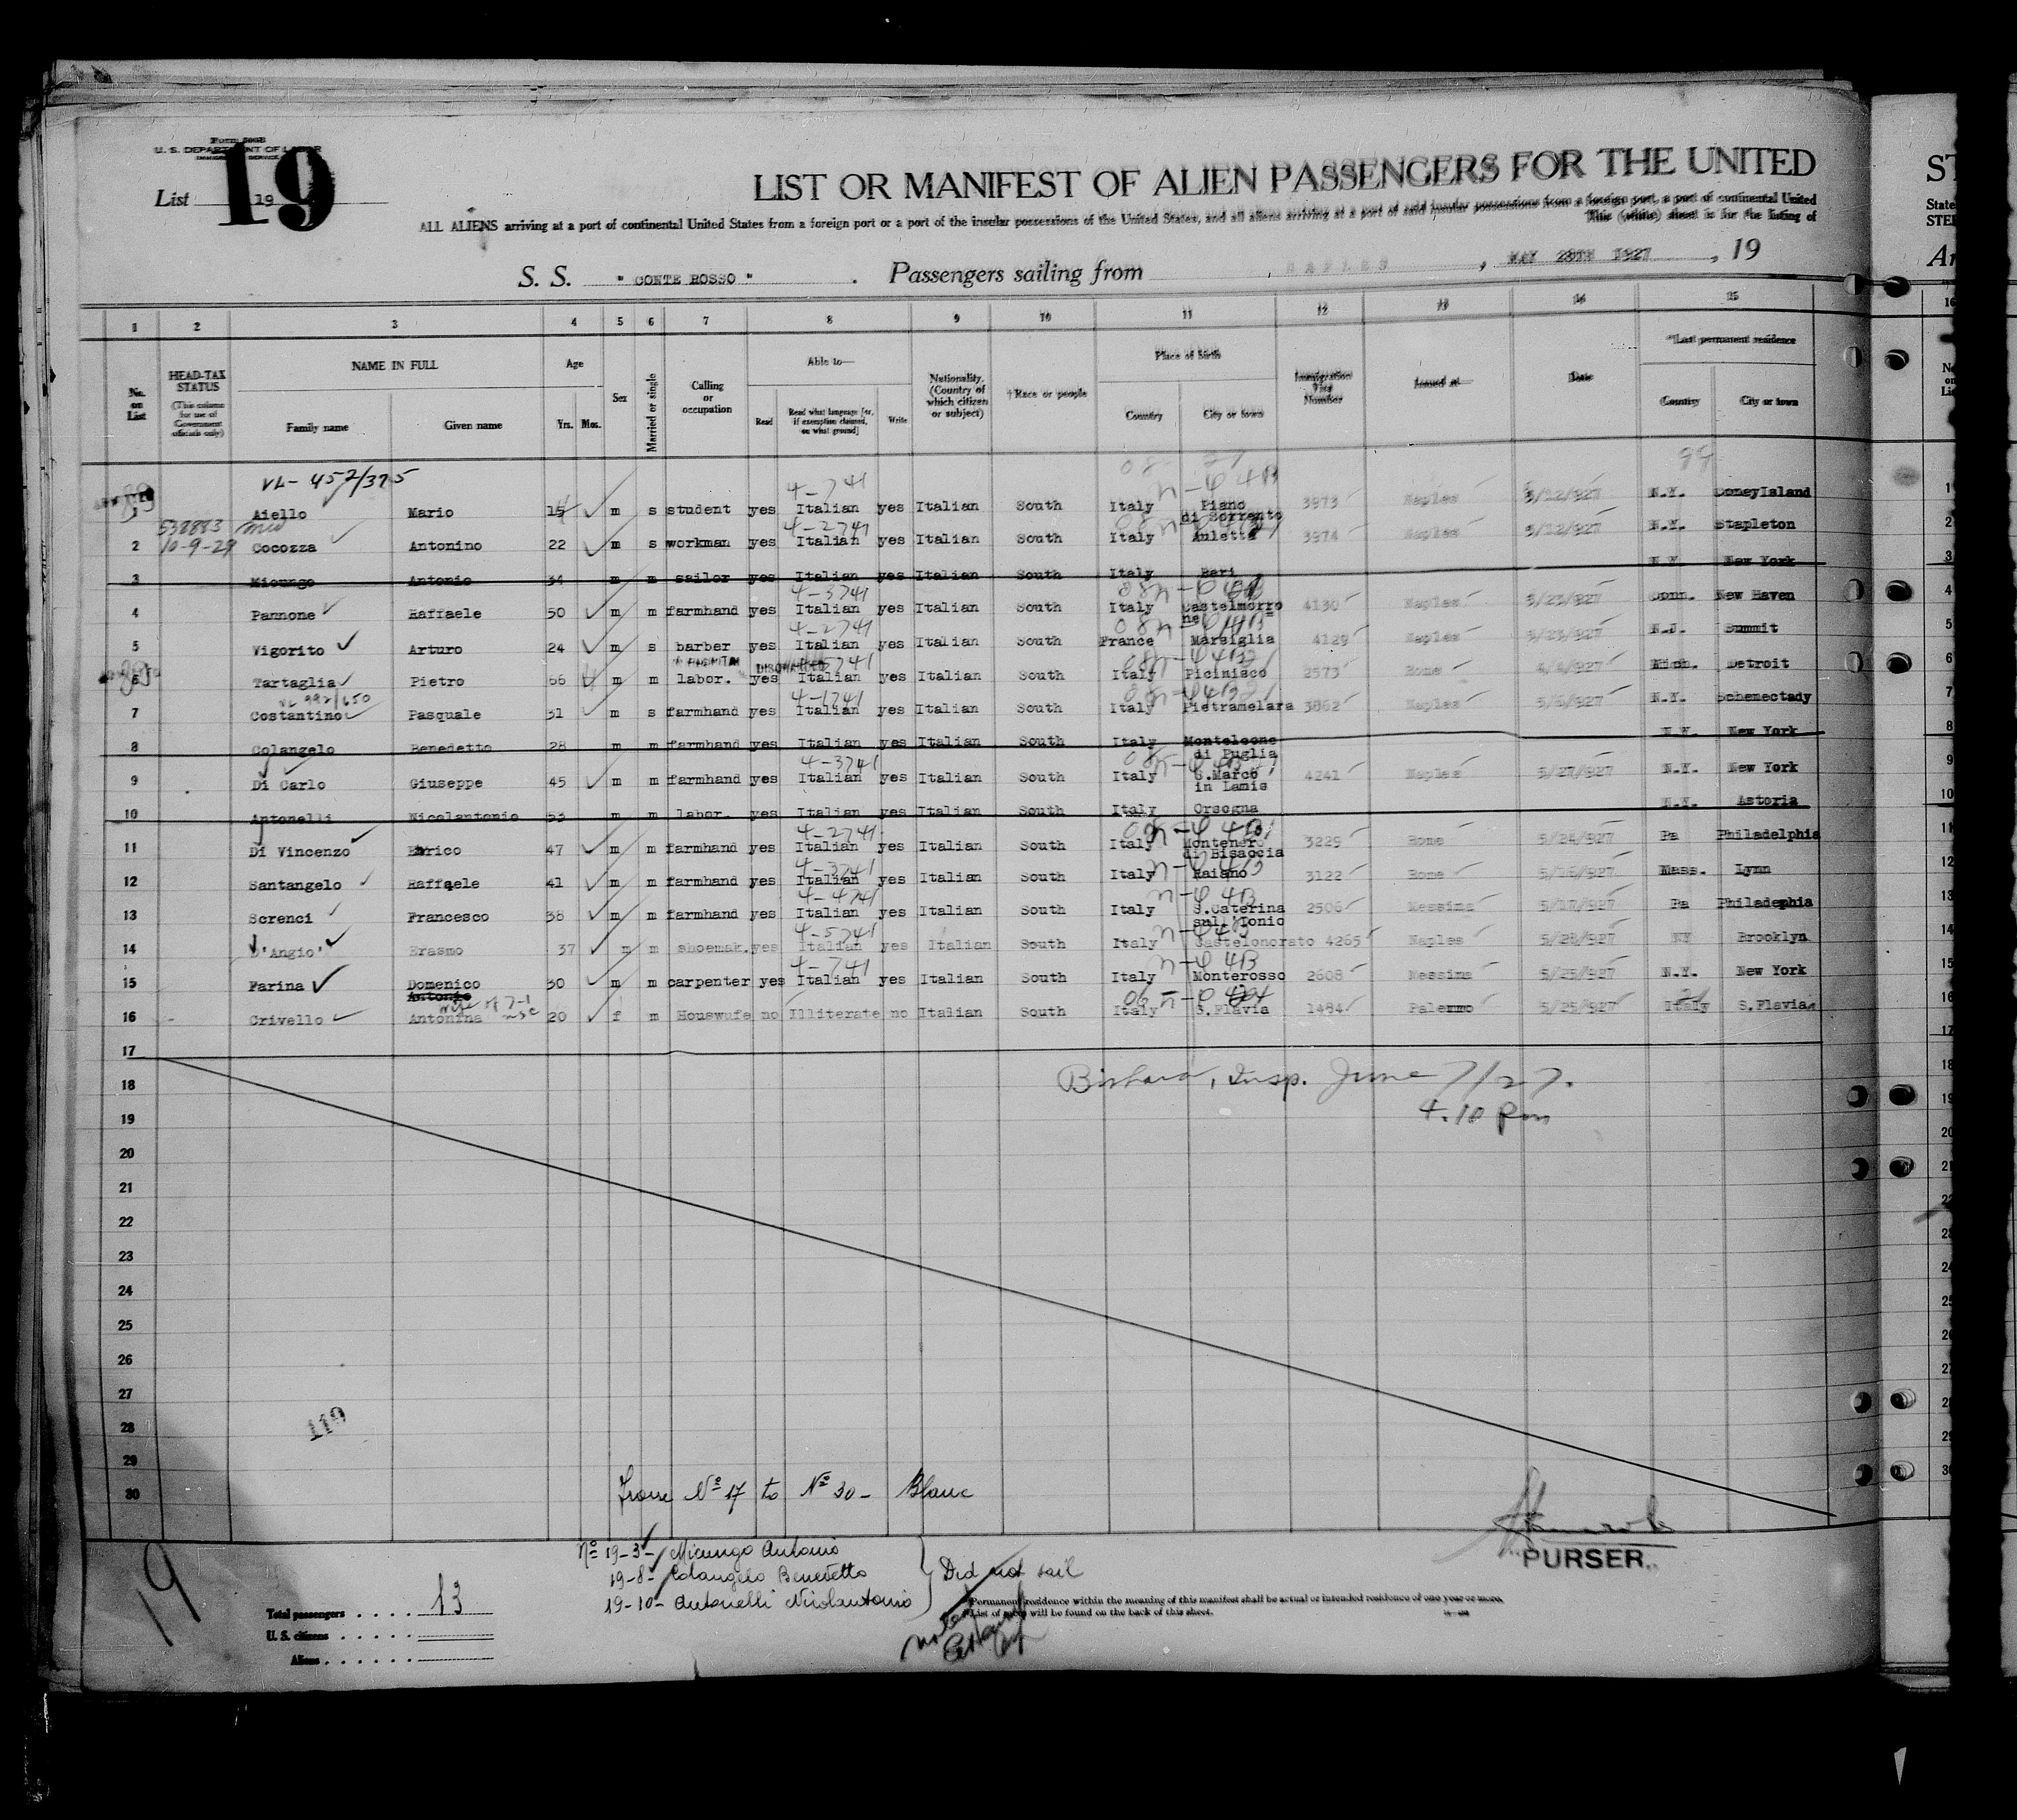 Form 500B
U. S. DEPARTMENT OF LABOR
IMMIGRATION SERVICE
List 19
19
LIST OR MANIFEST OF ALIEN PASSENGERS FOR THE UNITED
ALL ALIENS arriving at a port of continental United States from a foreign port or a port of the insular possessions of the United States, and all aliens arriving at a port of said insular possessions from a foreign port, a port of continental United
This (white) sheet is for the listing of
S. S. " CONTE ROSSO " . Passengers sailing from NAPLES , MAY 28TH 1927 , 19
1 2 3 4 5 6 7 8 9 10 11 12 13 14 15
No. on List
HEAD-TAX STATUS
(This column for use of Government officials only)
NAME IN FULL
Family name Given name
Age
Yrs. Mos.
Sex
Married or single
Calling or occupation
Able to—
Read Read what language [or, if exemption claimed, on what ground] Write
Nationality. (Country of which citizen or subject)
†Race or people
Place of birth
Country City or town
Immigration Visa Number
Issued at—
Date
*Last permanent residence
Country City or town
VL- 457/375 4-741 99
1 Aiello Mario 15 m s student yes Italian yes Italian South Italy Piano di Sorrento 3973 Naples 5/12/927 N.Y. ConeyIsland
538883 4-2741
10-9-29
2 Cocozza Antonino 22 m s workman yes Italian yes Italian South Italy Auletta 3974 Naples 5/12/927 N.Y. Stapleton
3 Micungo Antonio 34 m m sailor yes Italian yes Italian South Italy Bari N.Y. New York
4-3741
4 Pannone Raffaele 50 m m farmhand yes Italian yes Italian South Italy Castelmorro ne 4130 Naples 5/23/927 Conn. New Haven
4-2741
5 Vigorito Arturo 24 m s barber yes Italian yes Italian South France Marsiglia 4129 Naples 5/23/927 N.J. Summit
6 Tartaglia Pietro 66 m m labor. yes Italian yes Italian South Italy Picinisco 2573 Rome 4/4/927 Mich. Detroit
VL 992/650 4-1741
7 Costantino Pasquale 31 m s farmhand yes Italian yes Italian South Italy Pietramelara 3862 Naples 5/6/927 N.Y. Schenectady
8 Colangelo Benedetto 28 m m farmhand yes Italian yes Italian South Italy Monteleone di Puglia N.Y. New York
4-3741
9 Di Carlo Giuseppe 45 m m farmhand yes Italian yes Italian South Italy S.Marco in Lamis 4241 Naples 5/27/927 N.Y. New York
10 Antonelli Nicolantonio 53 m m labor. yes Italian yes Italian South Italy Orsogna N.Y. Astoria
4-2741
11 Di Vincenzo Enrico 47 m m farmhand yes Italian yes Italian South Italy Montenero di Bisaccia 3229 Rome 5/24/927 Pa Philadelphia
4-3741
12 Santangelo Raffaele 41 m m farmhand yes Italian yes Italian South Italy Raiano 3122 Rome 5/16/927 Mass. Lynn
4-4741
13 Screnci Francesco 38 m m farmhand yes Italian yes Italian South Italy S.Caterina sull'Ionio 2506 Messina 5/17/927 Pa Philadephia
4-5741
14 D'Angio' Erasmo 37 m m shoemak. yes Italian yes Italian South Italy Castelonorato 4265 Naples 5/28/927 NY Brooklyn
4-741
15 Farina Domenico 30 m m carpenter yes Italian yes Italian South Italy Monterosso 2608 Messina 5/25/927 N.Y. New York
Antonio
16 Crivello Antonina 20 f m Housewufe no Illiterate no Italian South Italy S.Flavia 1484 Palermo 5/25/927 Italy S.Flavia
17
18 Insp. June 7/27.
19 4.10 Pm
20
21
22
23
24
25
26
27
28 119
29
30 From Nº 17 to Nº 30 - Blanc
Nº 19-3- Micungo Antonio
19-8- Colangelo Benedetto
19-10- Antonelli Nicolantonio
Did not sail
PURSER.
19
Total passengers . . . . 13
U. S. citizens . . . . .
Aliens . . . . . .
*Permanent residence within the meaning of this manifest shall be actual or intended residence of one year or more.
†List of races will be found on the back of this sheet.